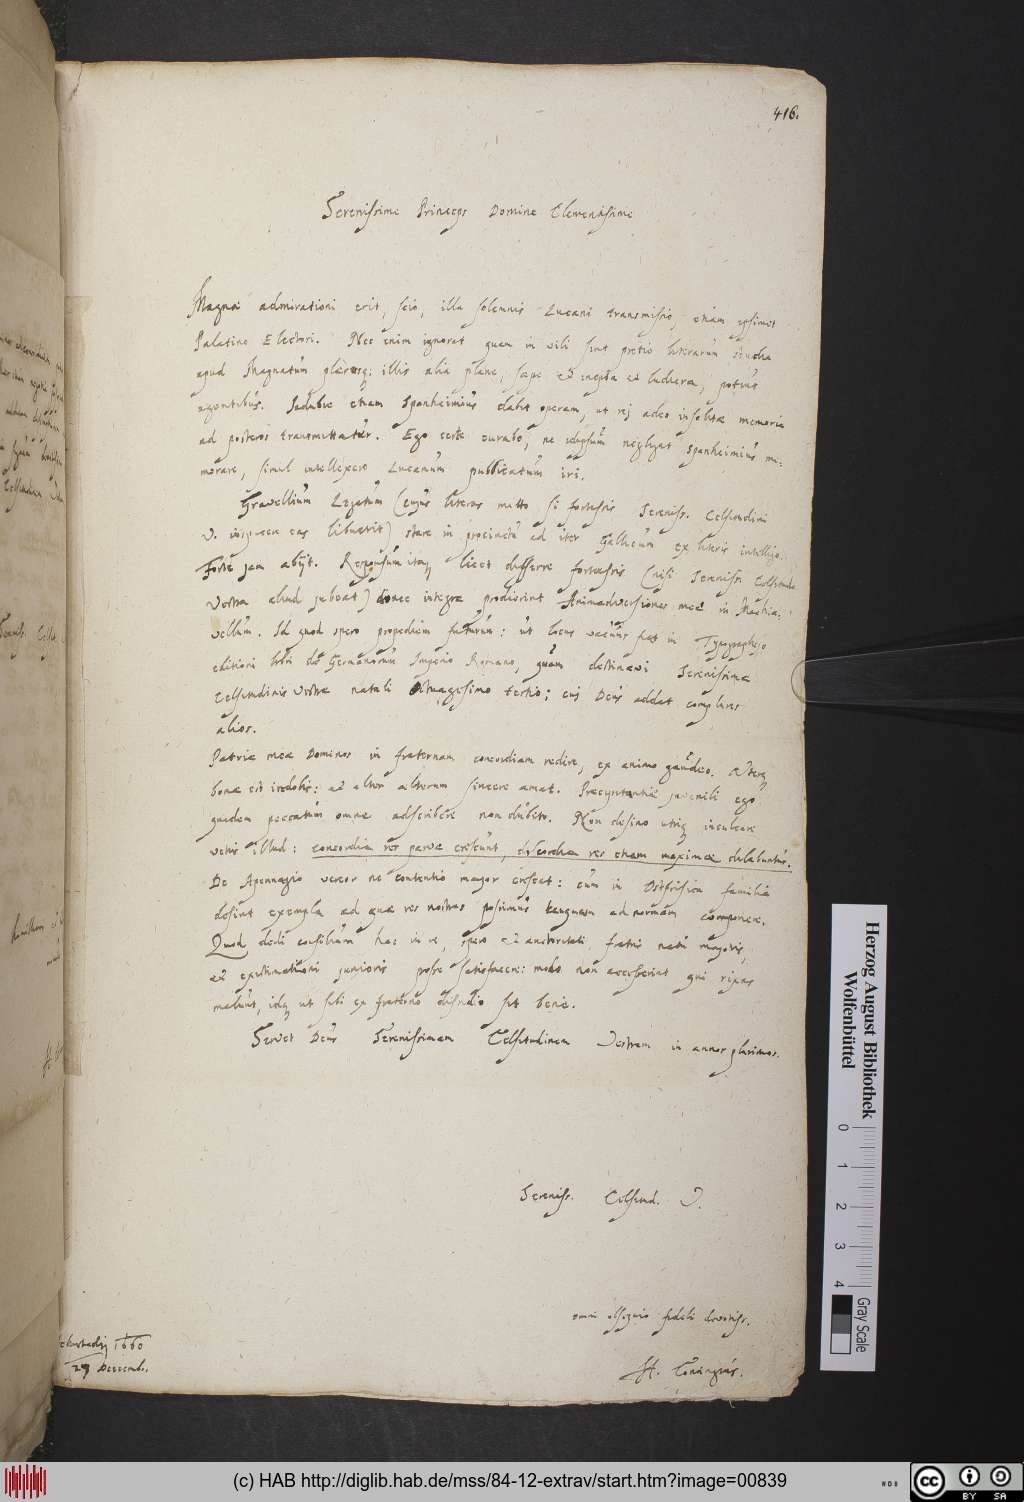 416.
Serenissime Princeps Domine Clementissime
Magnae admirationi erit, scio, illa solemnis Lucani transmissio, etiam ipsimet
Palatino Electori. Nec enim ignorat quam in vili sint pretio literarum studia
apud Magnatum plerosq; illis alia plane, saepe et inepta et ludicra, potius
agentibus. Sedulo etiam Spanheimius dabit operam, ut rei adeo insolitae memoria
ad posteros transmittatur. Ego certe curabo, ne idipsum negligat Spanheimius me-
morare, simul intellexero Lucanum publicatum iri.
Gravellium Legatum (cujus literas mitto si fortassis Sereniss. Celsitudini
V. inspicere eas libuerit) stare in procinctu ad iter Gallicum ex literis intelligo.
Forte jam abijt. Responsum itaq; licet differre fortassis (nisi Serenissa Celsitudo
Vestra aliud jubeat) donec integrae prodierint Animadversiones meae in Machia-
vellum. Id quod spero propediem futurum: ut locus vacuus fiat in Typographejo
editioni libri de Germanorum Imperio Romano, quam destinavi Serenissimae
Celsitudinis Vestrae natali Octuagesimo tertio; cui Deus addat complures
alios.
Patriae meae Dominos in fraternam concordiam redire, ex animo gaudeo. Uterq;
bonae est indolis: et alter alterum sincere amat. Praecipitantiae juvenili ego
quidem peccatum omne adscribere non dubito. Non desino utriq; inculcare
vetus illud: concordia res parvae crescunt, discordia res etiam maximae dilabuntur.
De Apennagio vereor ne contentio major crescat: cum in Ostfrisica familia
desint exempla ad quae res nostras possimus tanquam ad normam componere.
Quod dedi consilium hac in re, spero et auctoritati fratris natu majoris,
et existimationi junioris posse satisfacere: modo non accesserint qui rixas
malunt, idq; ut sibi ex fraterno dissidio sit bene.
Servet Deus Serenissimam Celsitudinem Vestram in annos plurimos.
Sereniss. Celsitud. V.
omni obsequio fideli devotiss.
H. Conringius.
1660
29 Decemb.
Herzog August Bibliothek
Wolfenbüttel
0 1 2 3 4
Gray Scale
(c) HAB http://diglib.hab.de/mss/84-12-extrav/start.htm?image=00839
WDB
CC BY SA